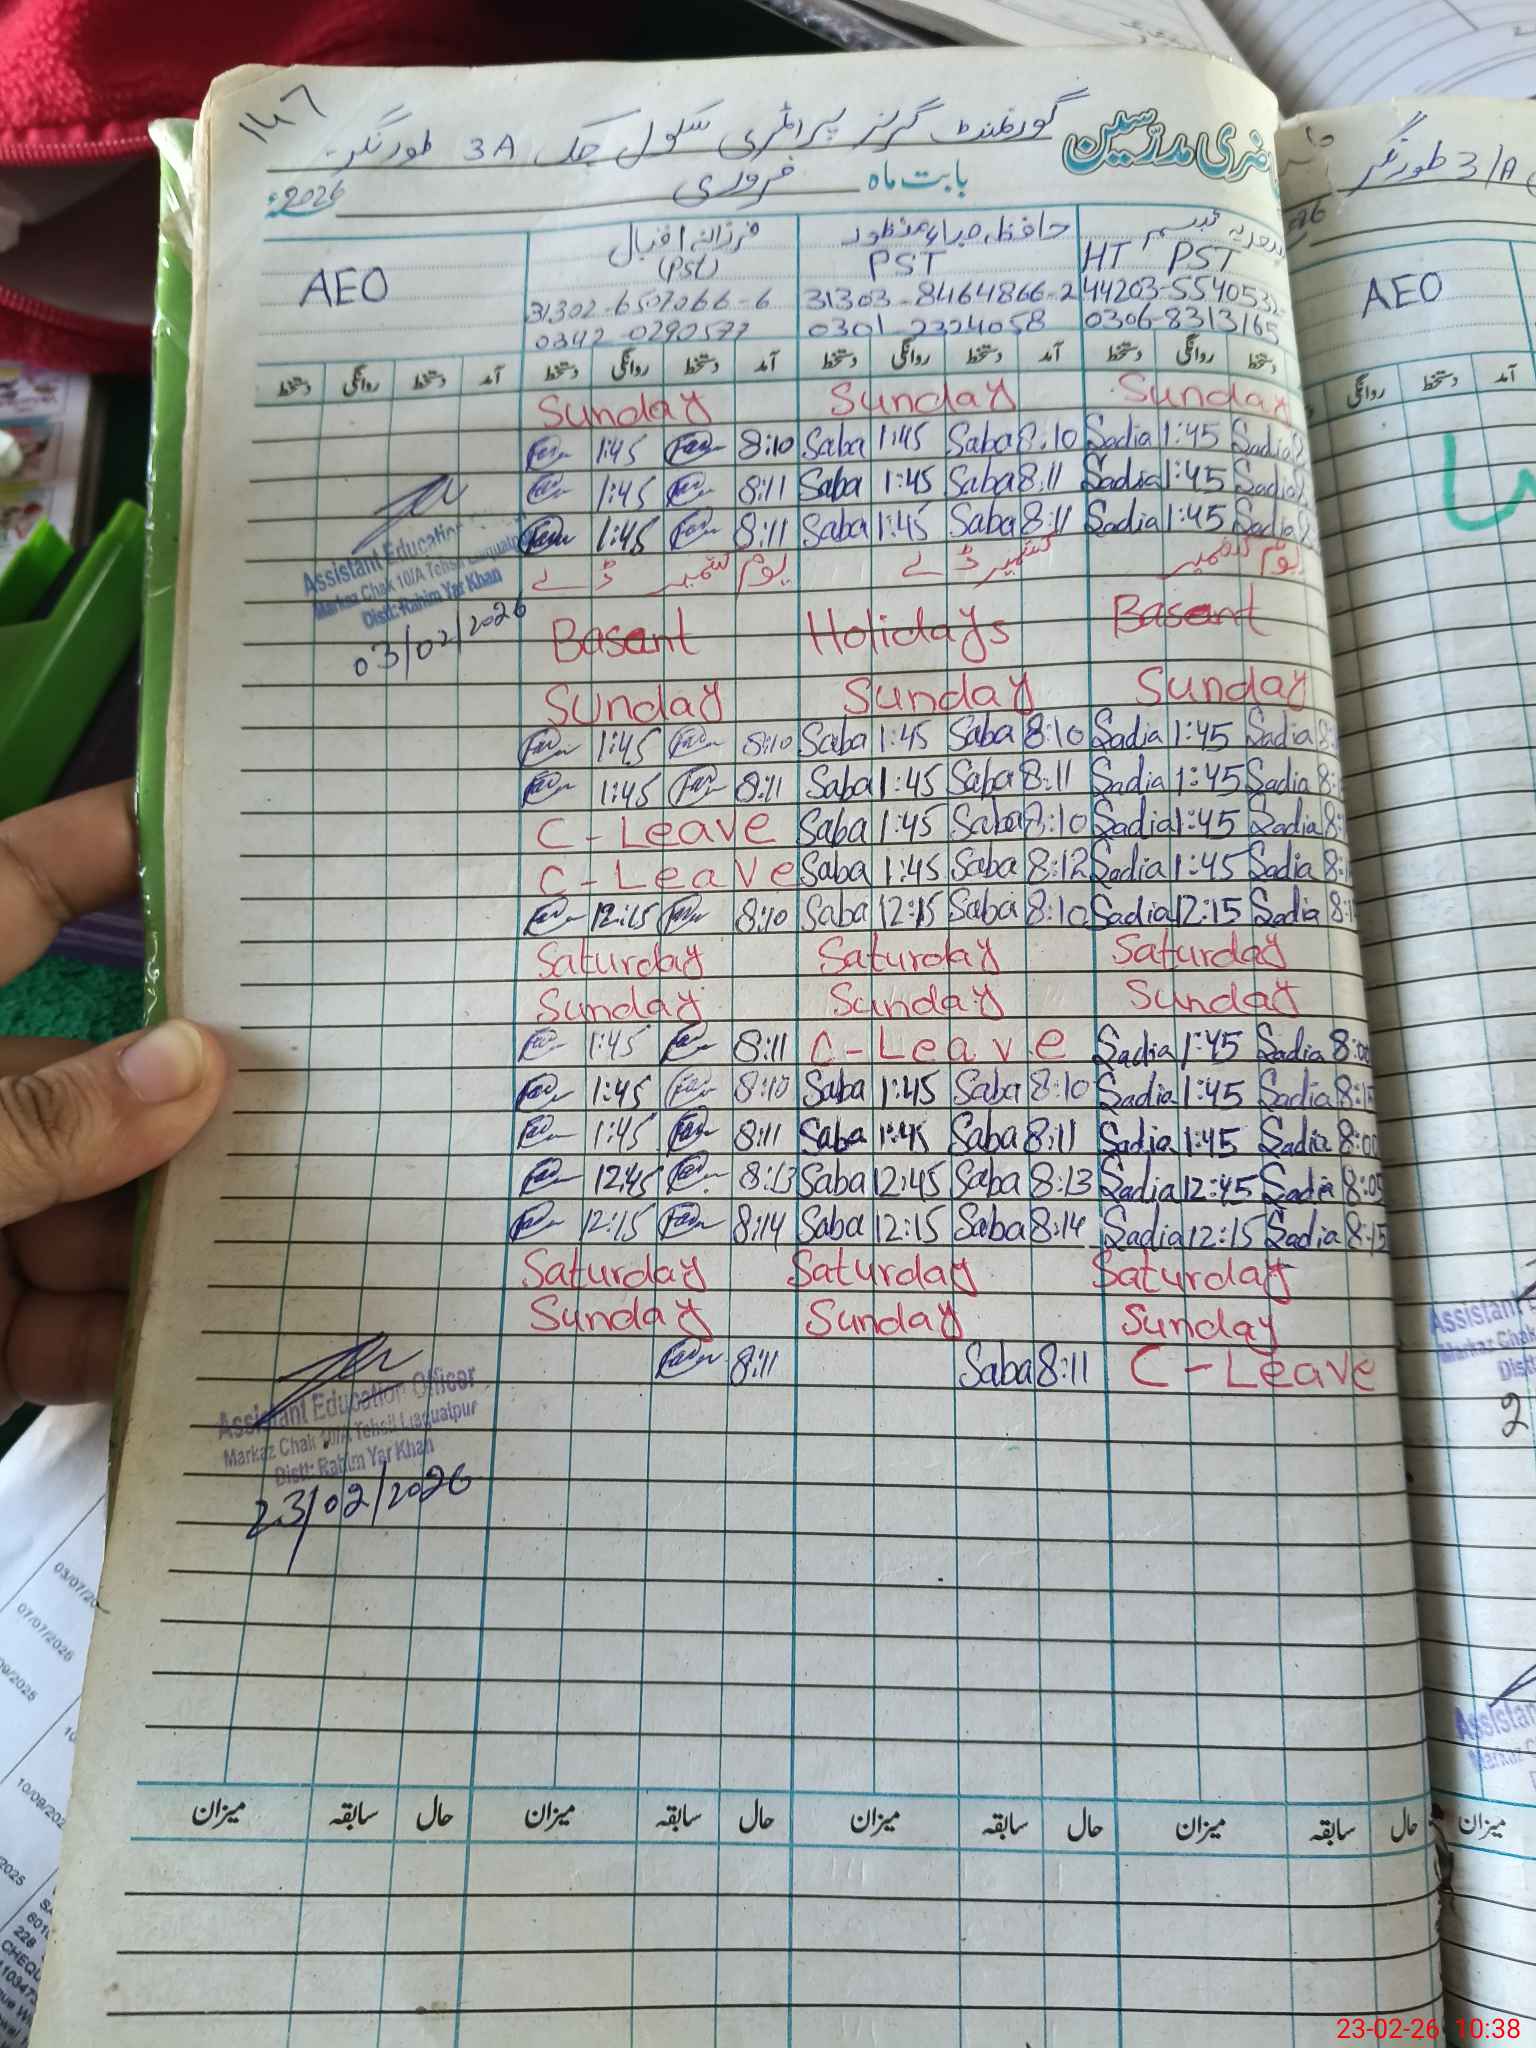 147
گورنمنٹ گرلز پرائمری سکول چک 3A طورنگر
ضری مدرسین
بابت ماہ فروری 2026ء
AEO
فرزانہ اقبال (PST) 31302-6507066-6 0342-0290577
حافظہ صباء منظور PST 31303-8464866-2 0301-2324058
سعدیہ تبسم HT PST 44203-5540532- 0306-8313165
دستخط روانگی دستخط آمد دستخط روانگی دستخط آمد دستخط روانگی دستخط آمد دستخط روانگی دستخط
Sunday Sunday Sunday
1:45 8:10 Saba 1:45 Saba 8:10 Sadia 1:45 Sadia 8
1:45 8:11 Saba 1:45 Saba 8:11 Sadia 1:45 Sadia
1:45 8:11 Saba 1:45 Saba 8:11 Sadia 1:45 Sadia 8
یوم کشمیر ڈے کشمیر ڈے یوم کشمیر
Assistant Education
Markaz Chak 10/A Tehsil Liaquatpur
Distt: Rahim Yar Khan
03/02/2026
Basant Holidays Basant
Sunday Sunday Sunday
1:45 8:10 Saba 1:45 Saba 8:10 Sadia 1:45 Sadia 8:
1:45 8:11 Saba 1:45 Saba 8:11 Sadia 1:45 Sadia 8:
C-Leave Saba 1:45 Saba 8:10 Sadia 1:45 Sadia 8:
C-Leave Saba 1:45 Saba 8:12 Sadia 1:45 Sadia 8:
12:15 8:10 Saba 12:15 Saba 8:10 Sadia 12:15 Sadia 8:
Saturday Saturday Saturday
Sunday Sunday Sunday
1:45 8:11 C-Leave Sadia 1:45 Sadia 8:00
1:45 8:10 Saba 1:45 Saba 8:10 Sadia 1:45 Sadia 8:15
1:45 8:11 Saba 1:45 Saba 8:11 Sadia 1:45 Sadia 8:00
12:45 8:13 Saba 12:45 Saba 8:13 Sadia 12:45 Sadia 8:05
12:15 8:14 Saba 12:15 Saba 8:14 Sadia 12:15 Sadia 8:15
Saturday Saturday Saturday
Sunday Sunday Sunday
8:11 Saba 8:11 C-Leave
Assistant Education Officer
Markaz Chak 10/A Tehsil Liaquatpur
Distt: Rahim Yar Khan
23/02/2026
میزان سابقہ حال میزان سابقہ حال میزان سابقہ حال میزان سابقہ حال
3/A طورنگر
AEO
روانگی دستخط آمد
Assistant
Markaz Cha
Distt:
2
Assistan
میزان
03/07/20
07/07/2025
09/2025
10/09/202
2025
228
CHEQU
23-02-26 10:38